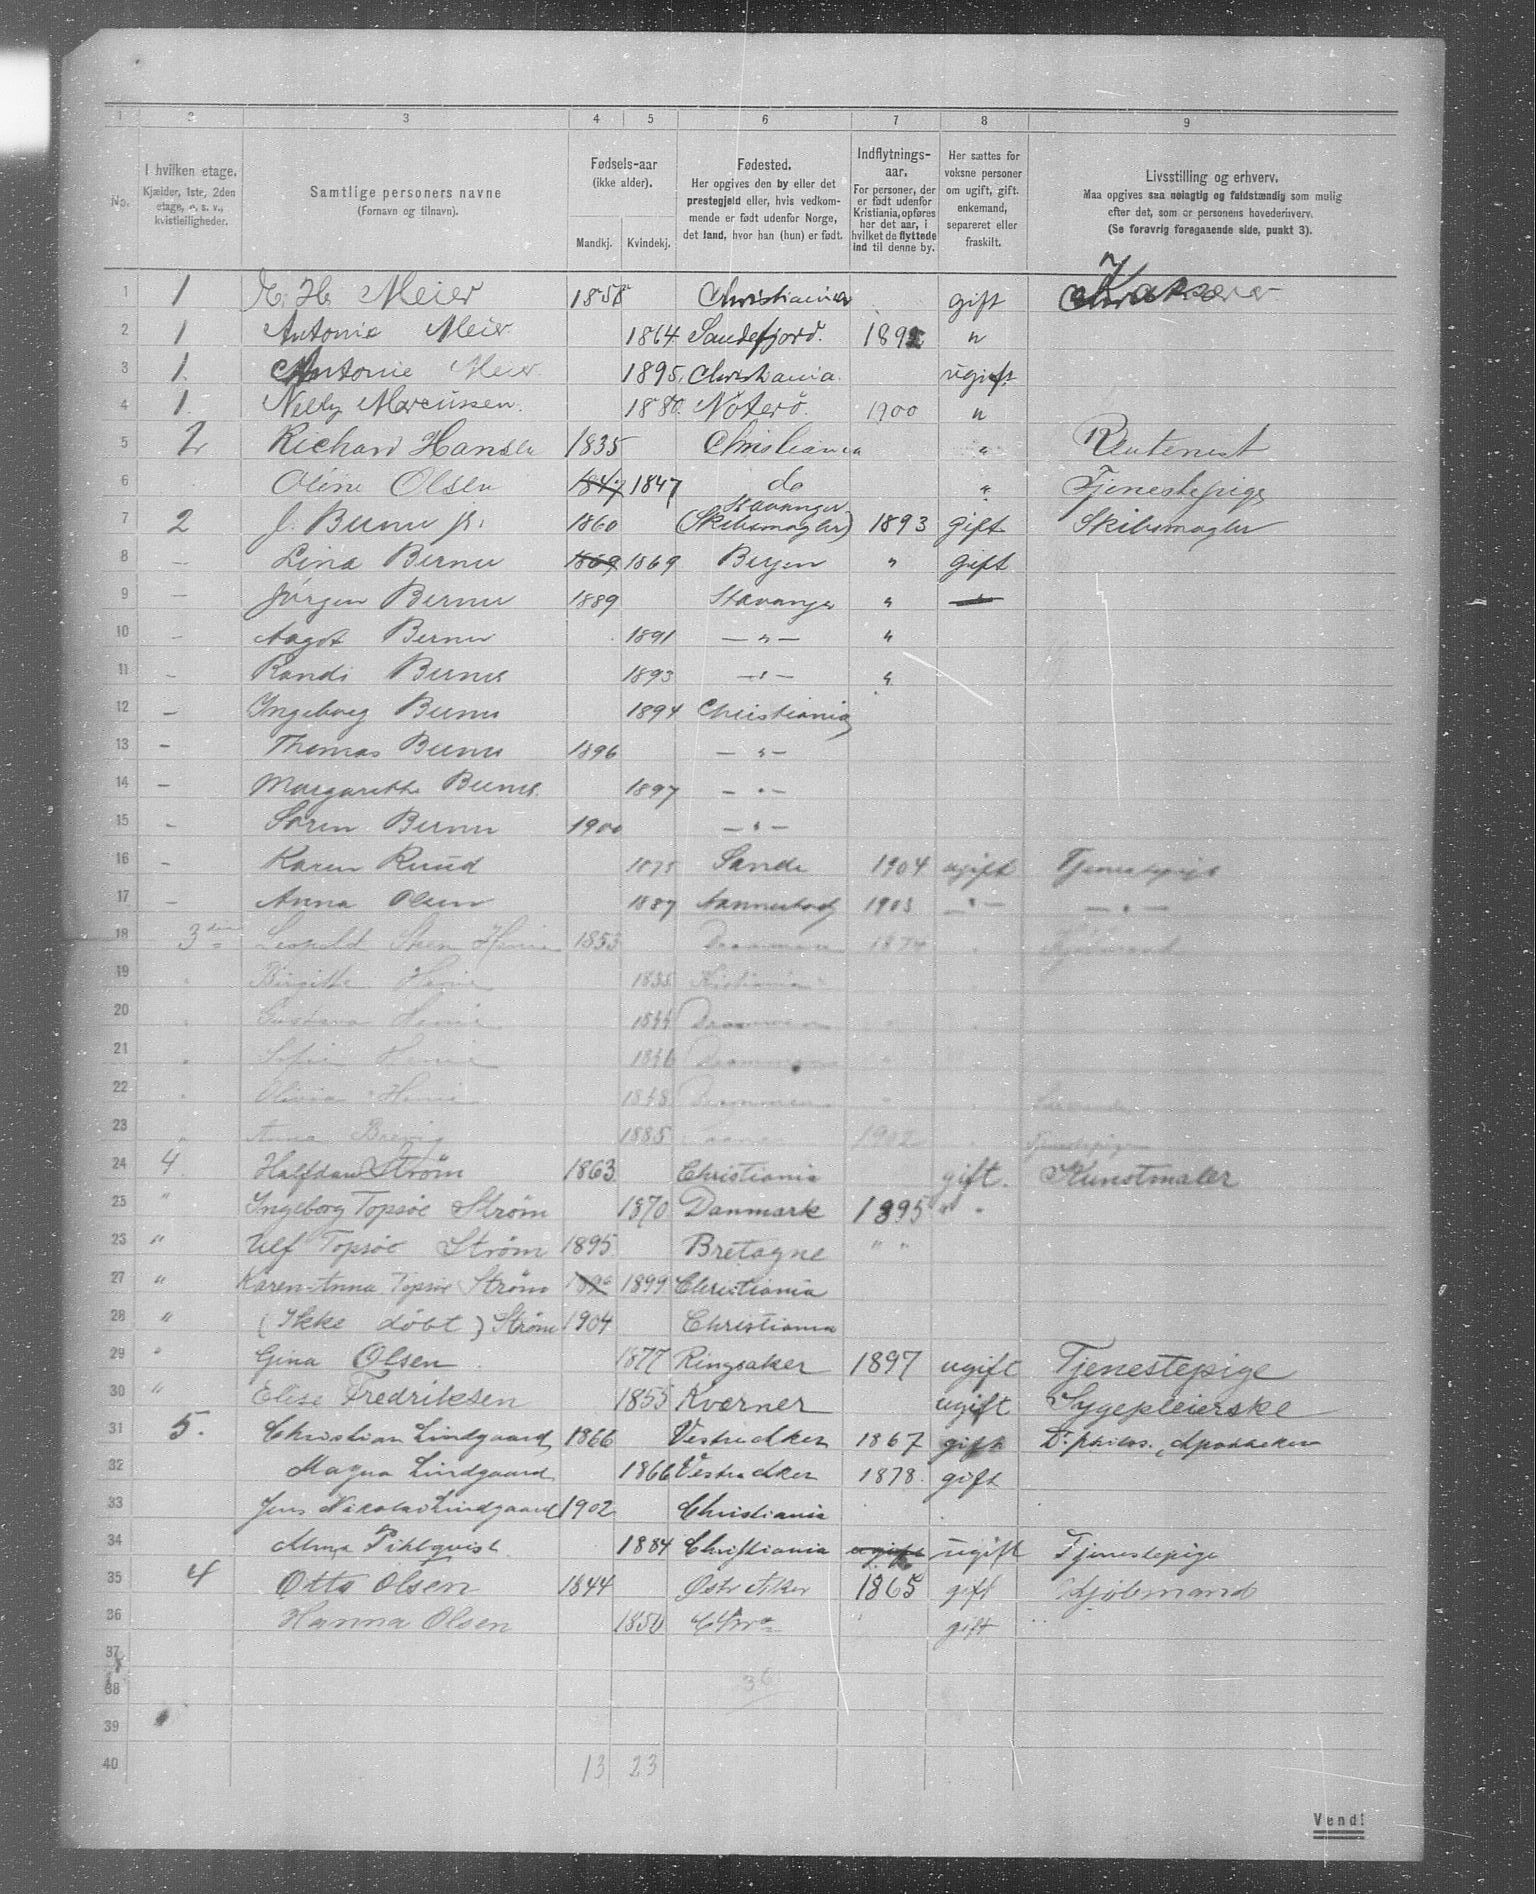 1 2 3 4 5 6 7 8 9
No.
I hvilken etage.
Kjælder, 1ste, 2den
etage, o. s. v.,
kvistleiligheder.
Samtlige personers navne
(Fornavn og tilnavn).
Fødsels-aar
(ikke alder).
Mandkj. Kvindekj.
Fødested.
Her opgives den by eller det
prestegjeld eller, hvis vedkom-
mende er født udenfor Norge,
det land, hvor han (hun) er født.
Indflytnings-
aar.
For personer, der
er født udenfor
Kristiania, opføres
her det aar, i
hvilket de flyttede
ind til denne by.
Her sættes for
voksne personer
om ugift, gift,
enkemand,
separeret eller
fraskilt.
Livsstilling og erhverv.
Maa opgives saa nøiagtig og fuldstændig som mulig
efter det, som er personens hovederhverv.
(Se forøvrig foregaaende side, punkt 3).
1 1 H. Meier Christiania gift
2 1 Antonie Meier 1864 Sandefjord. "
3 1. Antonie Meier 1895. Christiania. ugift
4 1. Nelly Marcussen. 1880. Nøterø. 1900 "
5 2 Richard Hansen 1835 Christiania " Rentenist
6 Oline Olsen 1847 1847 do " Tjenestepige
Stavanger
7 2 J. Berner jr. 1860 (Skibsmægler) 1893 gift Skibsmægler
8 — Lina Berner 1869 1869 Bergen " gift
9 — Jørgen Berner 1889 Stavanger "
10 — Aagot Berner 1891 — " — "
11 — Randi Berner 1893 — " — "
12 — Ingeborg Berner 1894 Christiania
13 — Thomas Berner 1896 — " —
14 — Margarethe Berner. 1897 — " —
15 — Søren Berner 1900 — " —
16 — Karen Ruud 1875 Sande 1904 ugift Tjenestepige
17 — Anna Olsen 1887 1903 — " — — " —
18 3den Leopold Steen Henie 1853 Drammen 1874 " Kjøbmand
19 " Birgitte Henie 1835 Kristiania "
20 " Gustava Henie 1844 Drammen "
21 " Sofie Henie 1846 Drammen "
22 " Olivia Henie 1848 Drammen " "
23 " Anna 1885 1902 Tjenestepige
24 4. Halfdan Strøm 1863 Christiania gift. Kunstmaler
25 " Ingeborg Topsøe Strøm 1870 Danmark 1895 " "
23 " Ulf Topsøe Strøm 1895 Bretagne " "
27 " Karen-Anna Topsøe Strøm 1899 Christiania
28 " (Ikke døbt) Strøm 1904 Christiania
29 " Gina Olsen 1877 Ringsaker 1897 ugift Tjenestepige
30 " Elise Fredriksen 1855 Kværner ugift Sygepleierske
31 5. Christian Lindgaard 1866 Vestre Aker 1867 gift Dr. philos., Apotheker
32 Magna Lindgaard 1866 Vestre Aker 1878. gift
33 Jens Nikolai Lindgaard 1902 Christiania
34 Alma Pihlqvist. 1884 Christiania ugift ugift Tjenestepige
35 4 Otto Olsen 1844 Østre Aker 1865 gift Kjøbmand
36 Hanna Olsen 1850 Chra " gift
37
38 36
39
40 13 23
Vend!